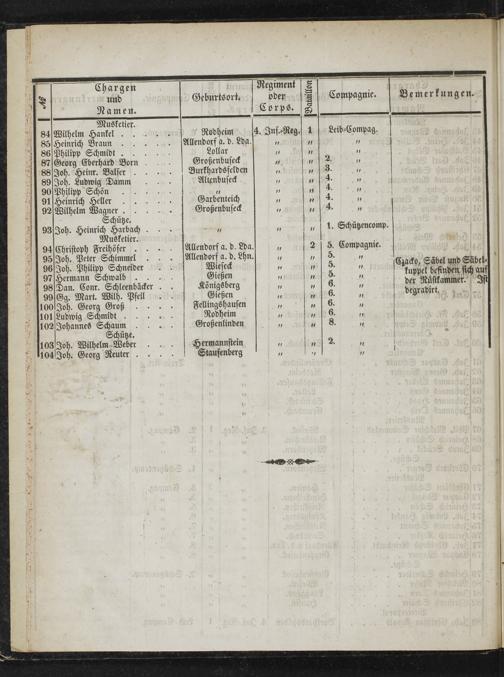 № Chargen und Namen. Geburtsort. Regiment oder Corps. Bataillon Compagnie. Bemerkungen.
Musketier.
84 Wilhelm Hankel . . . . Rodheim 4. Inf.-Reg. 1 Leib-Compag.
85 Heinrich Braun . . . . Allendorf a. d. Lda. „ „ „
86 Philipp Schmidt . . . . Lollar „ „ „
87 Georg Eberhard Born . . . Großenbuseck „ „ 2. „
88 Joh. Heinr. Balser . . . . Burkhardsfelden „ „ 3. „
89 Joh. Ludwig Damm . . . . Altenbuseck „ „ 4. „
90 Philipp Schön . . . . „ „ „ 4. „
91 Heinrich Heller . . . . Garbenteich „ „ 4. „
92 Wilhelm Wagner . . . . Großenbuseck „ „ 4. „
Schütze.
93 Joh. Heinrich Harbach . . . „ „ „ 1. Schützencomp.
Musketier.
94 Christoph Freihöfer . . . Allendorf a. d. Lda. „ 2 5. Compagnie.
95 Joh. Peter Schimmel . . . Allendorf a. d. Lhn. „ „ 5. „ Czacko, Säbel und Säbel-
96 Joh. Philipp Schneider . . Wieseck „ „ 5. „ kuppel befinden sich auf
97 Hermann Schwalb . . . . Gießen „ „ 5. „ der Rüstkammer. Ist
98 Dan. Conr. Schleenbäcker . . Königsberg „ „ 6. „ degradirt.
99 Gg. Mart. Wilh. Pfeil . . Gießen „ „ 6. „
100 Joh. Georg Groß . . . . Fellingshausen „ „ 6. „
101 Ludwig Schmidt . . . . Rodheim „ „ 6. „
102 Johannes Schaum . . . . Großenlinden „ „ 8. „
Schütze.
103 Joh. Wilhelm Weber . . . Hermannstein „ „ 2. „
104 Joh. Georg Reuter . . . . Staufenberg „ „ „